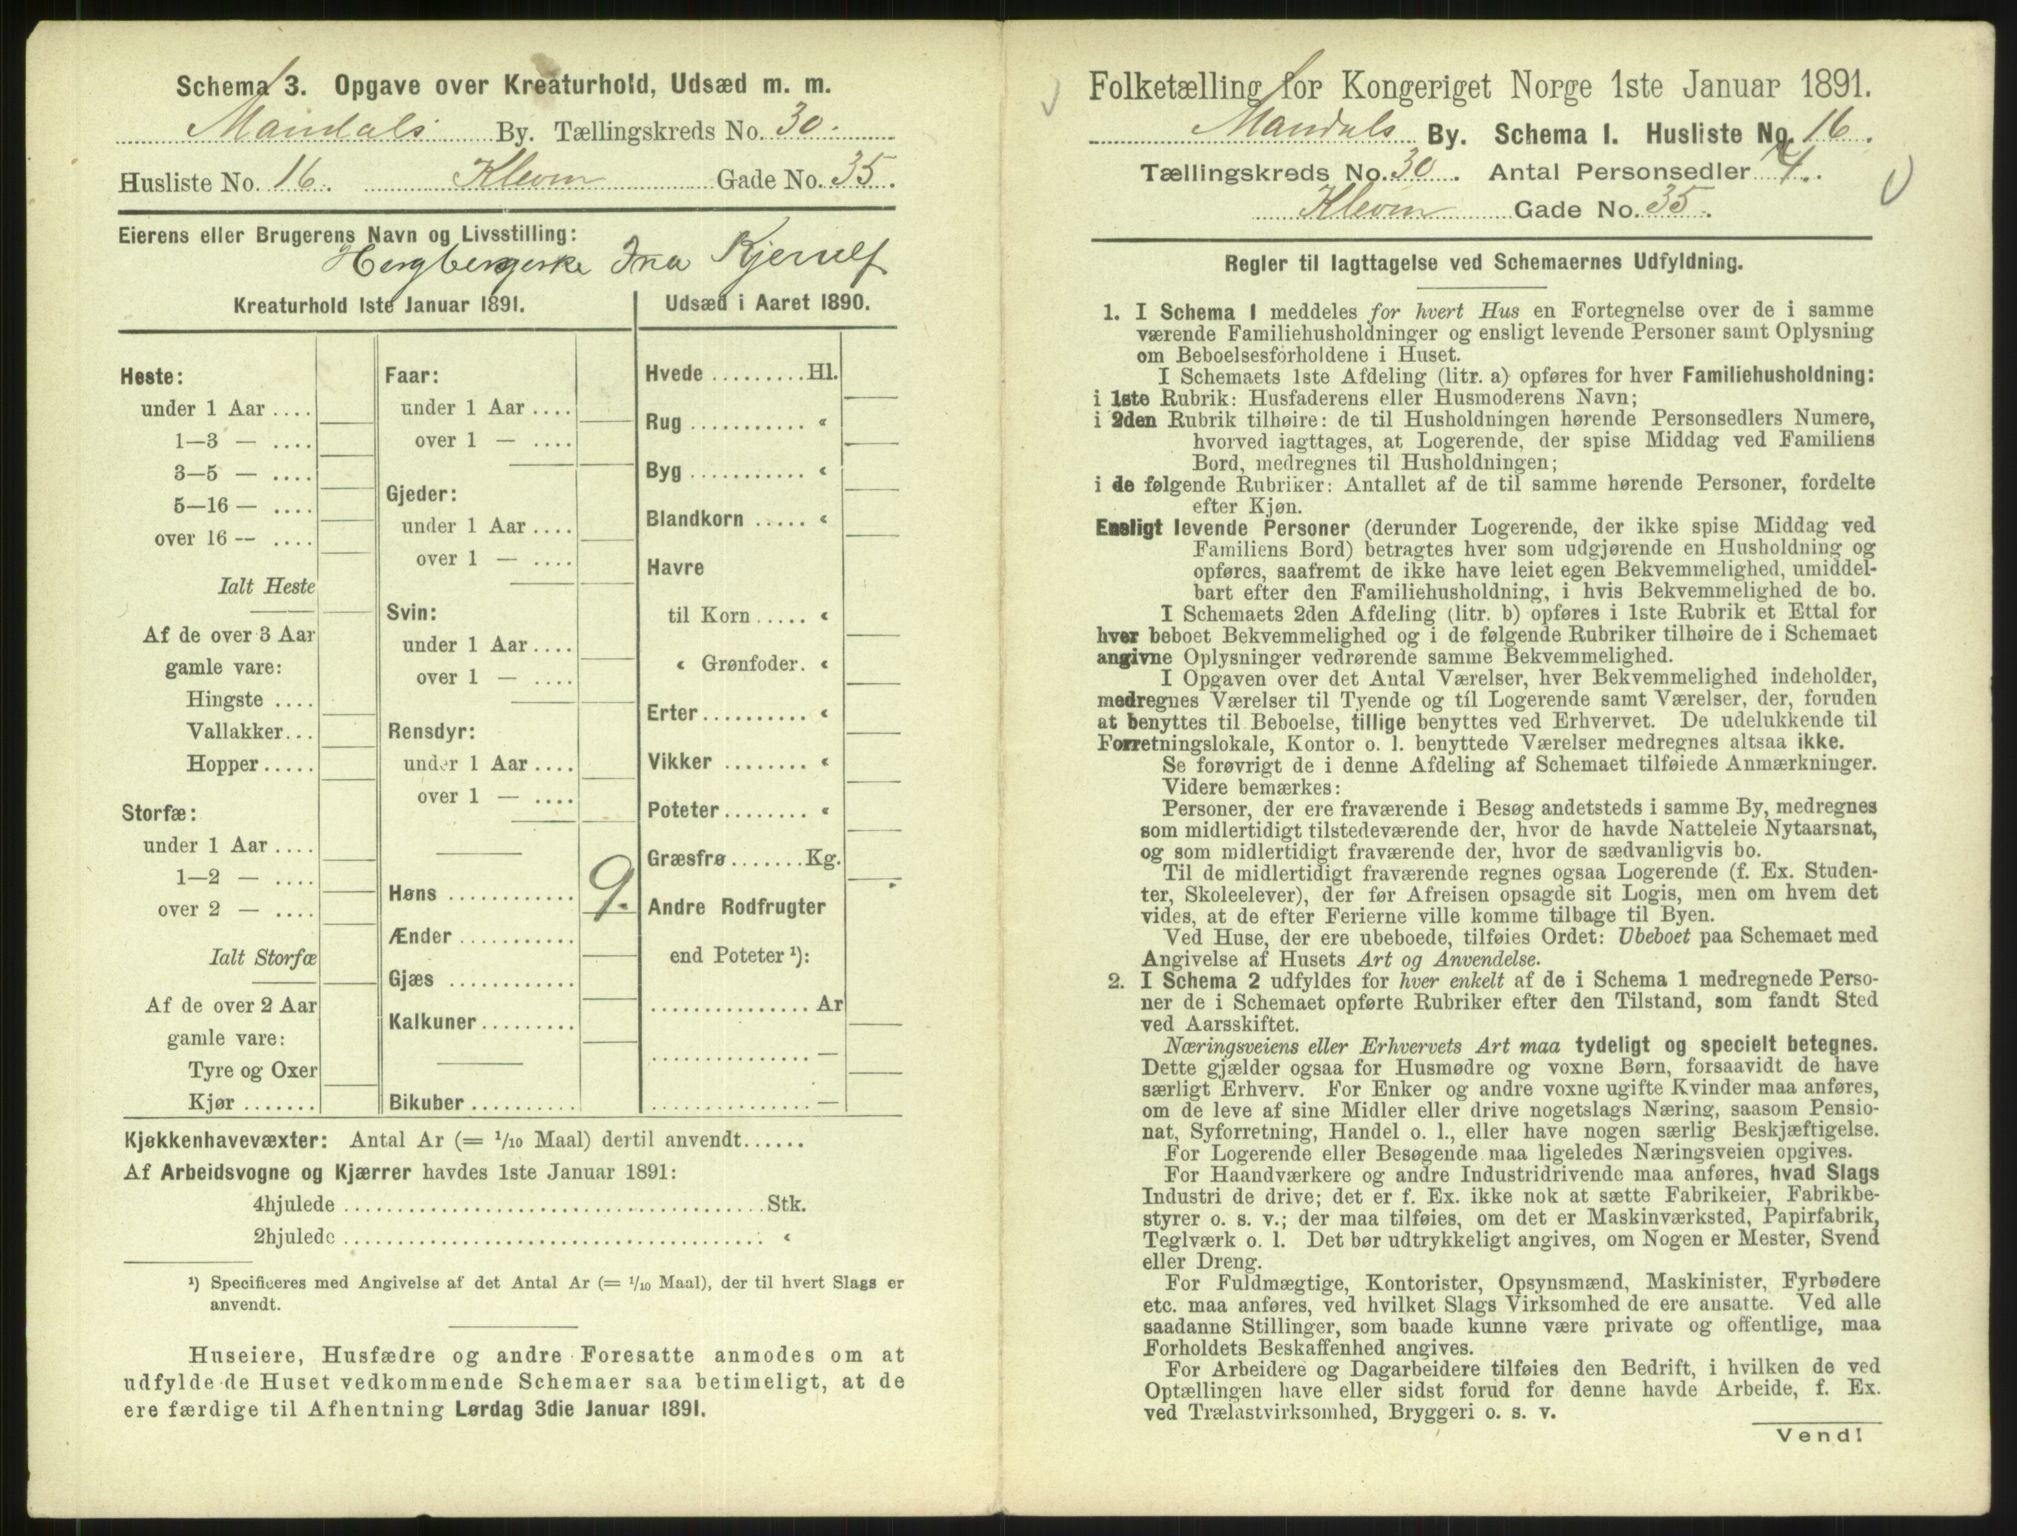 Schema 3. Opgave over Kreaturhold, Udsæd m. m.
Mandals By. Tællingskreds No. 30.
Husliste No. 16. Klevin Gade No. 35.
Eierens eller Brugerens Navn og Livsstilling:
Kjerulf
Kreaturhold 1ste Januar 1891.
Heste:
under 1 Aar ....
1—3 — ....
3—5 — ....
5—16 — ....
over 16 -- ....
Ialt Heste
Af de over 3 Aar
gamle vare:
Hingste ....
Vallakker...
Hopper.....
Storfæ:
under 1 Aar ....
1—2 — ....
over 2 — ....
Ialt Storfæ
Af de over 2 Aar
gamle vare:
Tyre og Oxer
Kjør .......
Faar:
under 1 Aar ....
over 1 — ....
Gjeder:
under 1 Aar ....
over 1 — ....
Svin:
under 1 Aar ....
over 1 — ....
Rensdyr:
under 1 Aar ....
over 1 — ....
Høns ............ 9.
Ænder ...........
Gjæs ............
Kalkuner.........
Bikuber ..........
Udsæd i Aaret 1890.
Hvede .........Hl.
Rug ........... «
Byg ........... «
Blandkorn ..... «
Havre
til Korn ..... «
« Grønfoder. «
Erter.......... «
Vikker ........ «
Poteter........ «
Græsfrø.......Kg.
Andre Rodfrugter
end Poteter ¹):
...............Ar
............... —
...............—
Kjøkkenhavevæxter: Antal Ar (= 1/10 Maal) dertil anvendt......
Af Arbeidsvogne og Kjærrer havdes 1ste Januar 1891:
4hjulede ........................................Stk.
2hjulede ........................................ «
¹) Specificeres med Angivelse af det Antal Ar (= 1/10 Maal), der til hvert Slags er
anvendt.
Huseiere, Husfædre og andre Foresatte anmodes om at
udfylde de Huset vedkommende Schemaer saa betimeligt, at de
ere færdige til Afhentning Lørdag 3die Januar 1891.
Folketælling for Kongeriget Norge 1ste Januar 1891.
Mandals By. Schema I. Husliste No. 16.
Tællingskreds No. 30. Antal Personsedler 4.
Klevin Gade No. 35.
Regler til Iagttagelse ved Schemaernes Udfyldning.
1. I Schema I meddeles for hvert Hus en Fortegnelse over de i samme
værende Familiehusholdninger og ensligt levende Personer samt Oplysning
om Beboelsesforholdene i Huset.
I Schemaets 1ste Afdeling (litr. a) opføres for hver Familiehusholdning:
i 1ste Rubrik: Husfaderens eller Husmoderens Navn;
i 2den Rubrik tilhøire: de til Husholdningen hørende Personsedlers Numere,
hvorved iagttages, at Logerende, der spise Middag ved Familiens
Bord, medregnes til Husholdningen;
i de følgende Rubriker: Antallet af de til samme hørende Personer, fordelte
efter Kjøn.
Ensligt levende Personer (derunder Logerende, der ikke spise Middag ved
Familiens Bord) betragtes hver som udgjørende en Husholdning og
opføres, saafremt de ikke have leiet egen Bekvemmelighed, umiddel-
bart efter den Familiehusholdning, i hvis Bekvemmelighed de bo.
I Schemaets 2den Afdeling (litr. b) opføres i 1ste Rubrik et Ettal for
hver beboet Bekvemmelighed og i de følgende Rubriker tilhøire de i Schemaet
angivne Oplysninger vedrørende samme Bekvemmelighed.
I Opgaven over det Antal Værelser, hver Bekvemmelighed indeholder,
medregnes Værelser til Tyende og til Logerende samt Værelser, der, foruden
at benyttes til Beboelse, tillige benyttes ved Erhvervet. De udelukkende til
Forretningslokale, Kontor o. l. benyttede Værelser medregnes altsaa ikke.
Se forøvrigt de i denne Afdeling af Schemaet tilføiede Anmærkninger.
Videre bemærkes:
Personer, der ere fraværende i Besøg andetsteds i samme By, medregnes
som midlertidigt tilstedeværende der, hvor de havde Natteleie Nytaarsnat,
og som midlertidigt fraværende der, hvor de sædvanligvis bo.
Til de midlertidigt fraværende regnes ogsaa Logerende (f. Ex. Studen-
ter, Skoleelever), der før Afreisen opsagde sit Logis, men om hvem det
vides, at de efter Ferierne ville komme tilbage til Byen.
Ved Huse, der ere ubeboede, tilføies Ordet: Ubeboet paa Schemaet med
Angivelse af Husets Art og Anvendelse.
2. I Schema 2 udfyldes for hver enkelt af de i Schema 1 medregnede Perso-
ner de i Schemaet opførte Rubriker efter den Tilstand, som fandt Sted
ved Aarsskiftet.
Næringsveiens eller Erhvervets Art maa tydeligt og specielt betegnes.
Dette gjælder ogsaa for Husmødre og voxne Børn, forsaavidt de have
særligt Erhverv. For Enker og andre voxne ugifte Kvinder maa anføres,
om de leve af sine Midler eller drive nogetslags Næring, saasom Pensio-
nat, Syforretning, Handel o. l., eller have nogen særlig Beskjæftigelse.
For Logerende eller Besøgende maa ligeledes Næringsveien opgives.
For Haandværkere og andre Industridrivende maa anføres, hvad Slags
Industri de drive; det er f. Ex. ikke nok at sætte Fabrikeier, Fabrikbe-
styrer o. s. v.; der maa tilføies, om det er Maskinværksted, Papirfabrik,
Teglværk o. l. Det bør udtrykkeligt angives, om Nogen er Mester, Svend
eller Dreng.
For Fuldmægtige, Kontorister, Opsynsmænd, Maskinister, Fyrbødere
etc. maa anføres, ved hvilket Slags Virksomhed de ere ansatte. Ved alle
saadanne Stillinger, som baade kunne være private og offentlige, maa
Forholdets Beskaffenhed angives.
For Arbeidere og Dagarbeidere tilføies den Bedrift, i hvilken de ved
Optællingen have eller sidst forud for denne havde Arbeide, f. Ex.
ved Trælastvirksomhed, Bryggeri o. s. v.
Vend!